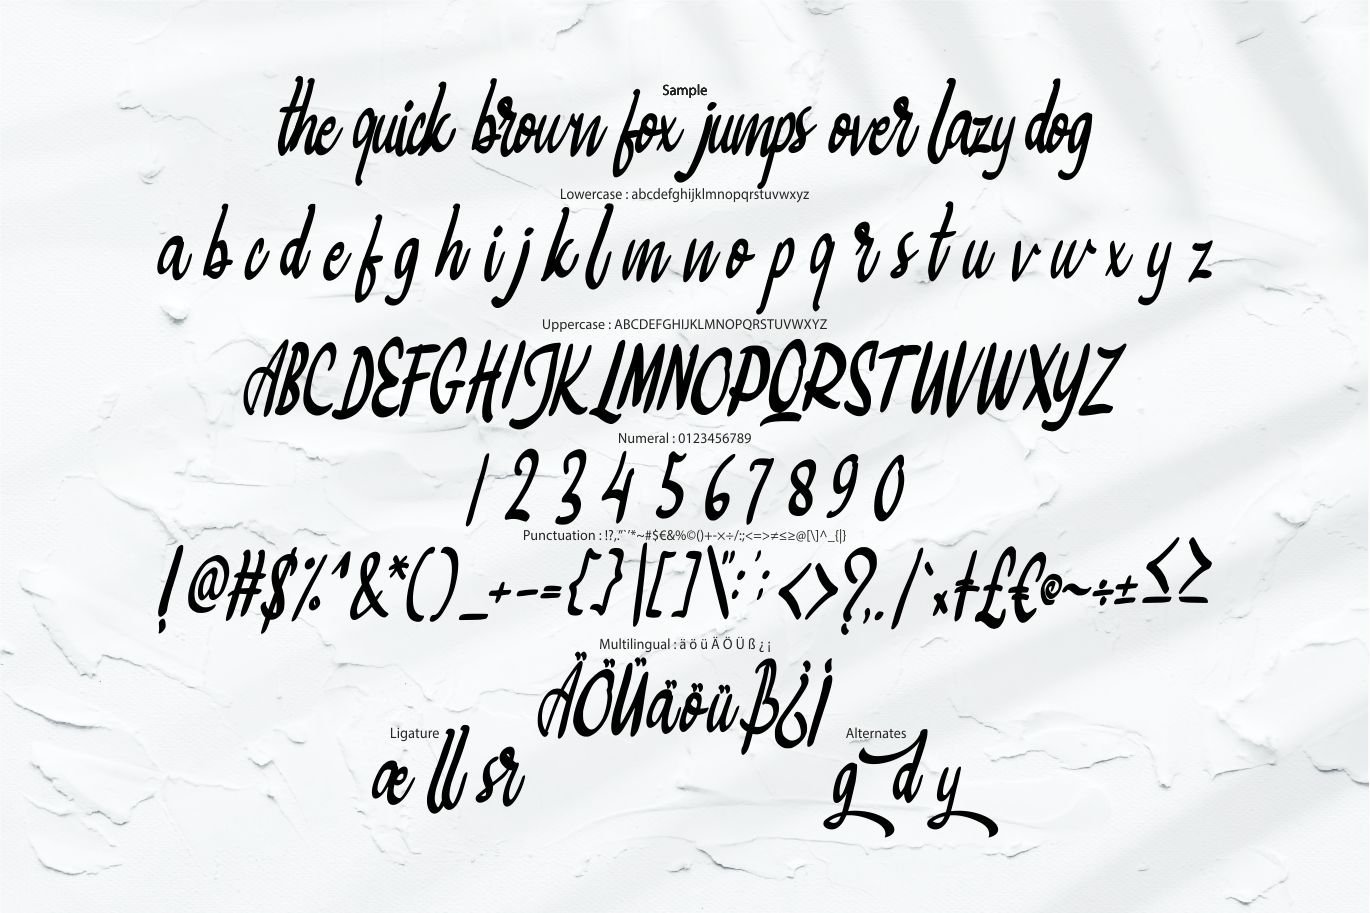 Sample
the quick brown fox jumps over lazy dog
Lowercase : abcdefghijklmnopqrstuvwxyz
a b c d e f g h i j k l m n o p q r s t u v w x y z
Uppercase : ABCDEFGHIJKLMNOPQRSTUVWXYZ
ABCDEFGHIJKLMNOPQRSTUVWXYZ
Numeral : 0123456789
1 2 3 4 5 6 7 8 9 0
Punctuation : !?,.”“’‘*~#$€&%©()+-×÷/:;<=>≠≤≥@[\]^_{|}
!@#$%^&*()_+-={}|[]\":';<>?,./`×†£€©~÷±≤≥
Multilingual : ä ö ü Ä Ö Ü ß ¿ ¡
ÄÖÜäöüß¿¡
Ligature
æ ll sr
Alternates
g d y